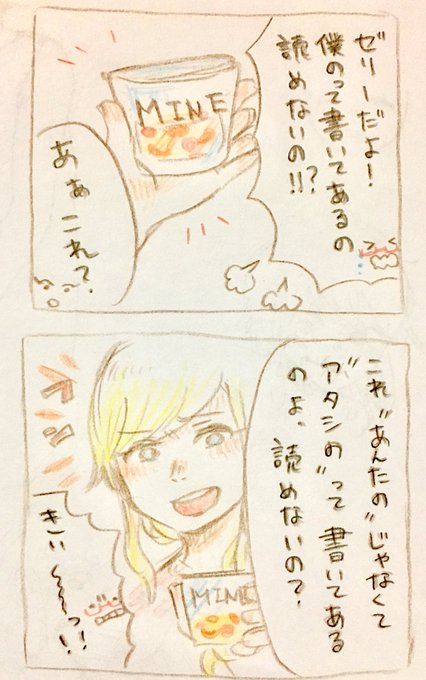 ゼリーだよ！
僕のって書いてあるの
読めないの!!?
MINE
あぁ これ？
これ“あんたの”じゃなくて
“アタシの”って書いてある
のよ、読めないの？
MINE
きぃ〜〜〜っ!!